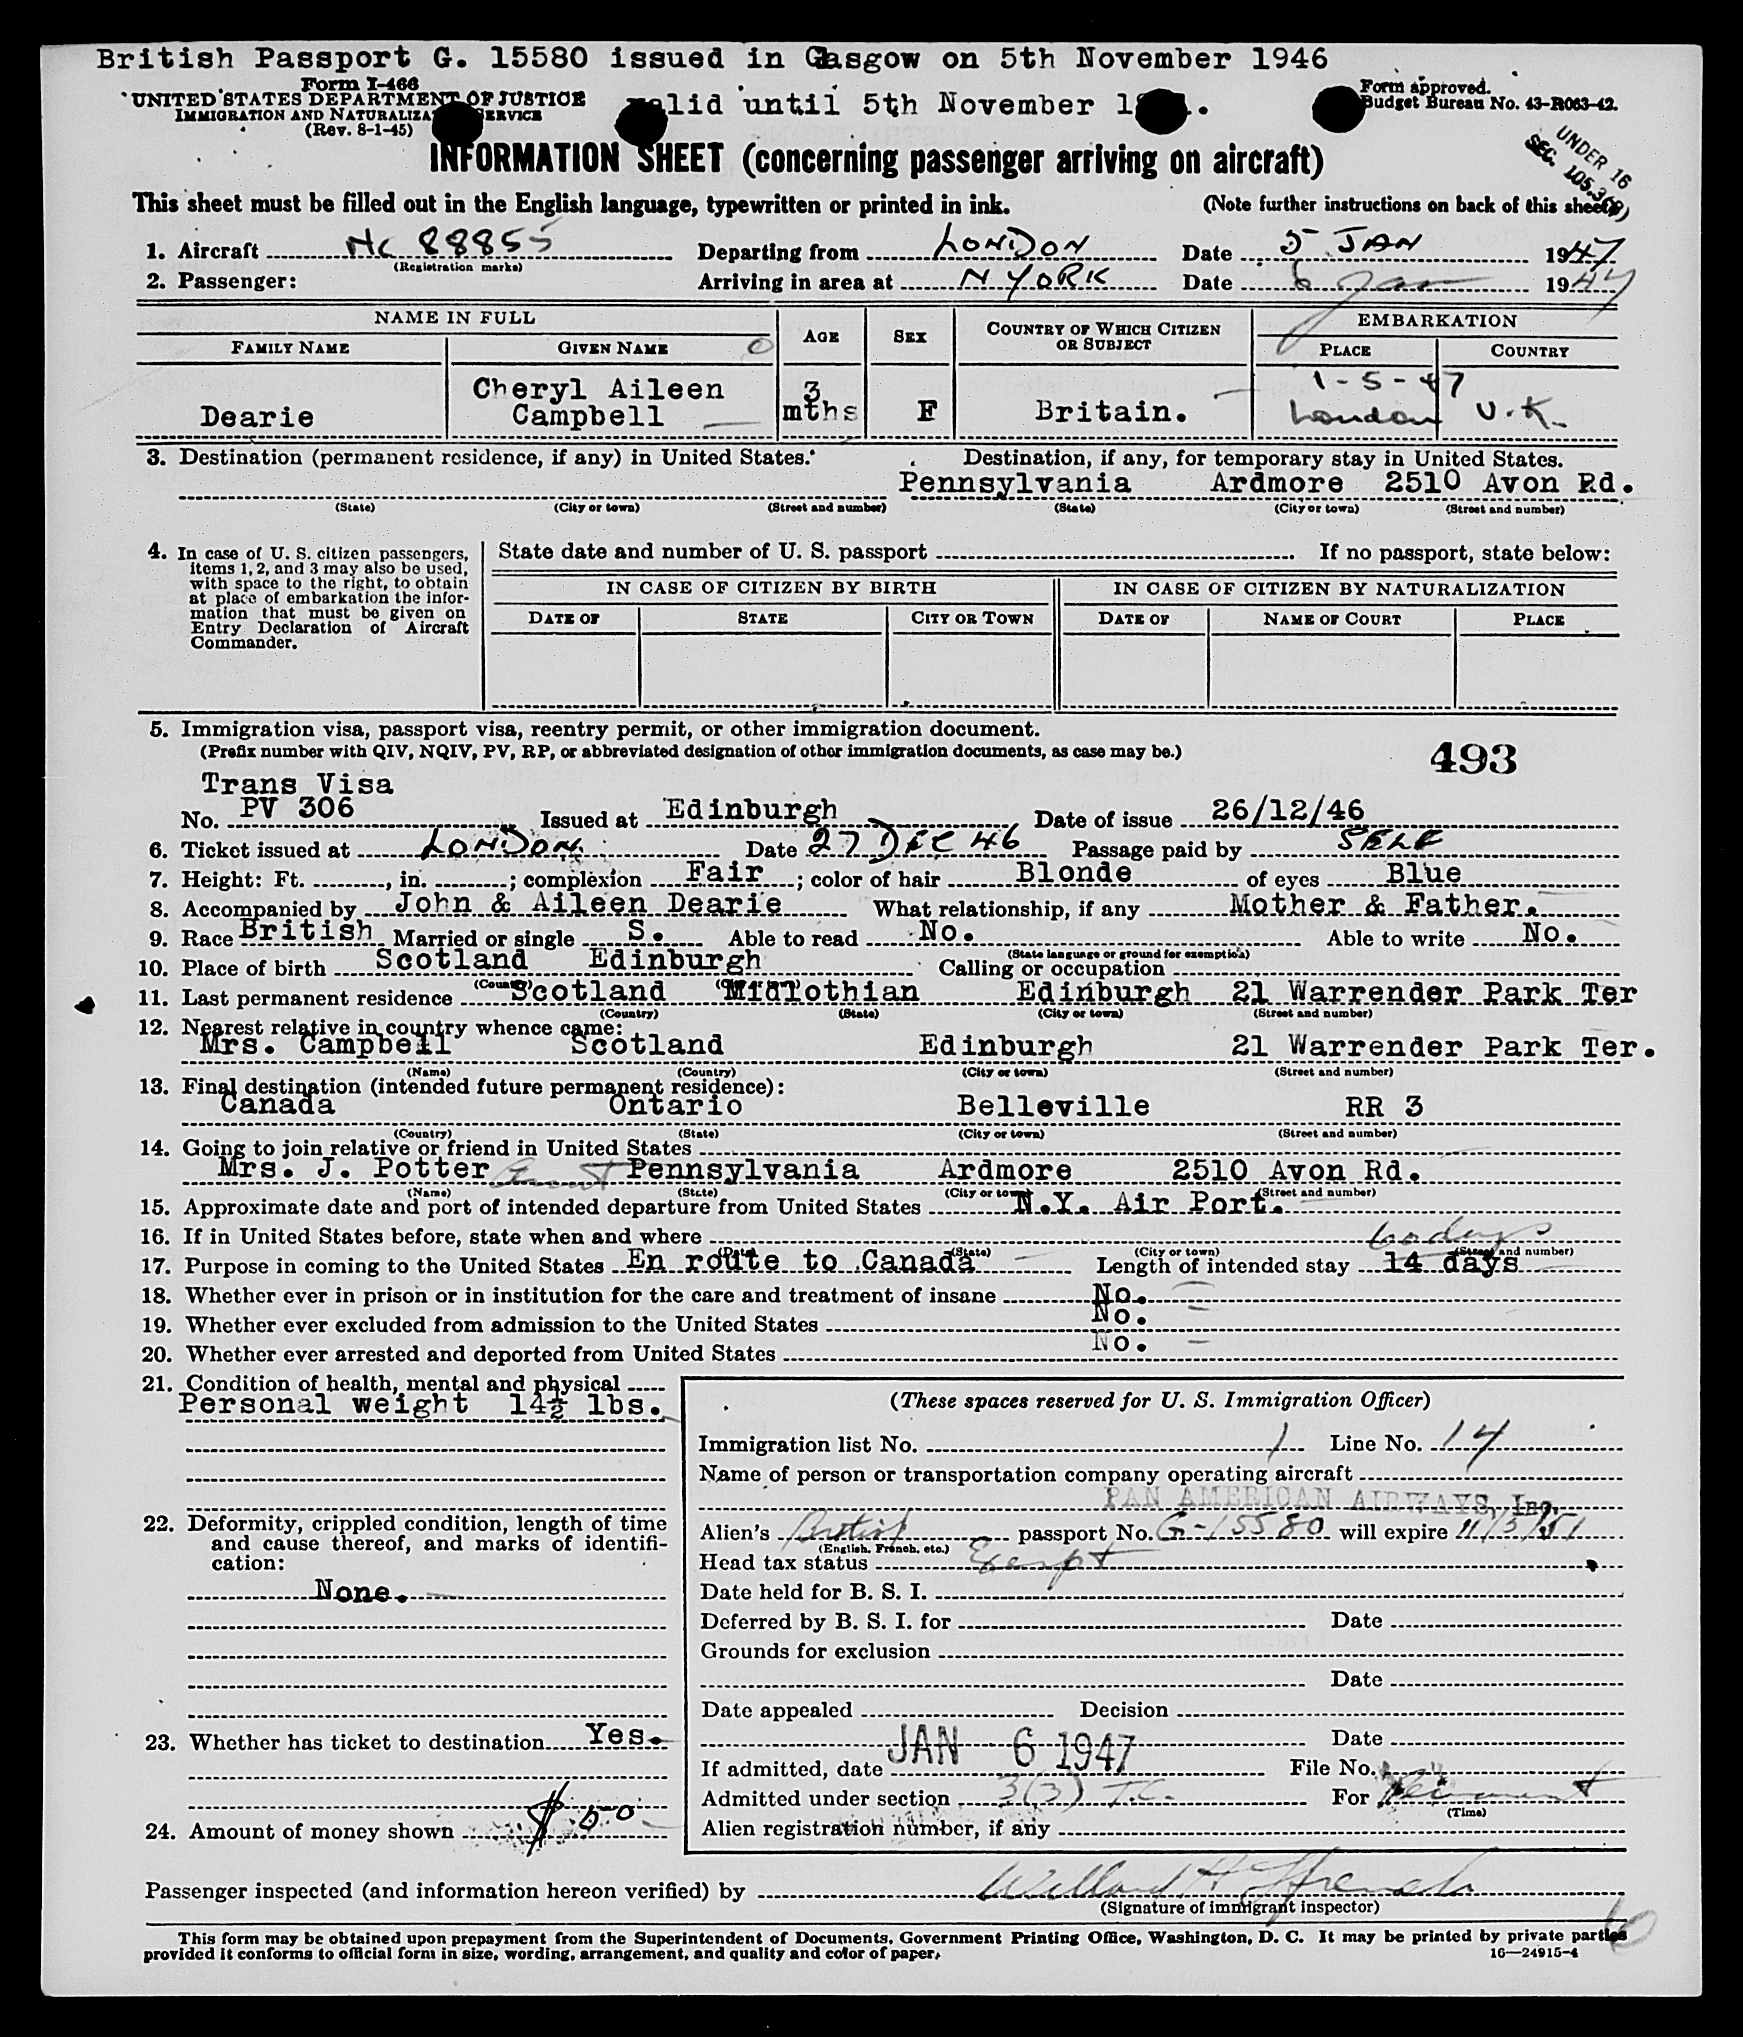 British Passport G. 15580 issued in Glasgow on 5th November 1946
Form I-466
UNITED STATES DEPARTMENT OF JUSTICE
IMMIGRATION AND NATURALIZATION SERVICE
(Rev. 8-1-45)
valid until 5th November
Form approved.
Budget Bureau No. 43-R063-42.
UNDER 16
SEC. 105.3(B)
INFORMATION SHEET (concerning passenger arriving on aircraft)
This sheet must be filled out in the English language, typewritten or printed in ink. (Note further instructions on back of this sheet.)
1. Aircraft NC 88855 Departing from LONDON Date 5 JAN 1947
(Registration marks)
2. Passenger: Arriving in area at N YORK Date 6 Jan 1947
NAME IN FULL AGE SEX COUNTRY OF WHICH CITIZEN OR SUBJECT EMBARKATION
FAMILY NAME GIVEN NAME PLACE COUNTRY
Cheryl Aileen 3 1-5-47
Dearie Campbell mths F Britain. London U.K.
3. Destination (permanent residence, if any) in United States. Destination, if any, for temporary stay in United States.
Pennsylvania Ardmore 2510 Avon Rd.
(State) (City or town) (Street and number) (State) (City or town) (Street and number)
4. In case of U. S. citizen passengers, items 1, 2, and 3 may also be used, with space to the right, to obtain at place of embarkation the information that must be given on Entry Declaration of Aircraft Commander.
State date and number of U. S. passport If no passport, state below:
IN CASE OF CITIZEN BY BIRTH IN CASE OF CITIZEN BY NATURALIZATION
DATE OF STATE CITY OR TOWN DATE OF NAME OF COURT PLACE
5. Immigration visa, passport visa, reentry permit, or other immigration document.
(Prefix number with QIV, NQIV, PV, RP, or abbreviated designation of other immigration documents, as case may be.)
493
Trans Visa
No. PV 306 Issued at Edinburgh Date of issue 26/12/46
6. Ticket issued at LONDON Date 27 DEC 46 Passage paid by SELF
7. Height: Ft. , in. ; complexion Fair ; color of hair Blonde of eyes Blue
8. Accompanied by John & Aileen Dearie What relationship, if any Mother & Father.
9. Race British Married or single S. Able to read No. Able to write No.
(State language or ground for exemption)
10. Place of birth Scotland Edinburgh Calling or occupation
11. Last permanent residence Scotland Midlothian Edinburgh 21 Warrender Park Ter
(Country) (State) (City or town) (Street and number)
12. Nearest relative in country whence came:
Mrs. Campbell Scotland Edinburgh 21 Warrender Park Ter.
(Name) (Country) (City or town) (Street and number)
13. Final destination (intended future permanent residence):
Canada Ontario Belleville RR 3
(Country) (State) (City or town) (Street and number)
14. Going to join relative or friend in United States
Mrs. J. Potter Aunt Pennsylvania Ardmore 2510 Avon Rd.
(Name) (State) (City or town) (Street and number)
15. Approximate date and port of intended departure from United States N.Y. Air Port.
16. If in United States before, state when and where
(Date) (State) (City or town) (Street and number)
17. Purpose in coming to the United States En route to Canada Length of intended stay 14 days
18. Whether ever in prison or in institution for the care and treatment of insane No.
19. Whether ever excluded from admission to the United States No.
20. Whether ever arrested and deported from United States No.
21. Condition of health, mental and physical
Personal weight 14½ lbs.
22. Deformity, crippled condition, length of time and cause thereof, and marks of identification:
None.
23. Whether has ticket to destination Yes.
24. Amount of money shown $ 50
(These spaces reserved for U. S. Immigration Officer)
Immigration list No. 1 Line No. 14
Name of person or transportation company operating aircraft
PAN AMERICAN AIRWAYS, Inc.
Alien's British passport No. G-15580 will expire 11/5/51
(English, French, etc.)
Head tax status Exempt
Date held for B. S. I.
Deferred by B. S. I. for Date
Grounds for exclusion
Date
Date appealed Decision
Date
If admitted, date JAN - 6 1947 File No.
Admitted under section 3(3) T.C. For
(Time)
Alien registration number, if any
Passenger inspected (and information hereon verified) by
(Signature of immigrant inspector)
This form may be obtained upon prepayment from the Superintendent of Documents, Government Printing Office, Washington, D. C. It may be printed by private parties
provided it conforms to official form in size, wording, arrangement, and quality and color of paper.
16—24915-4